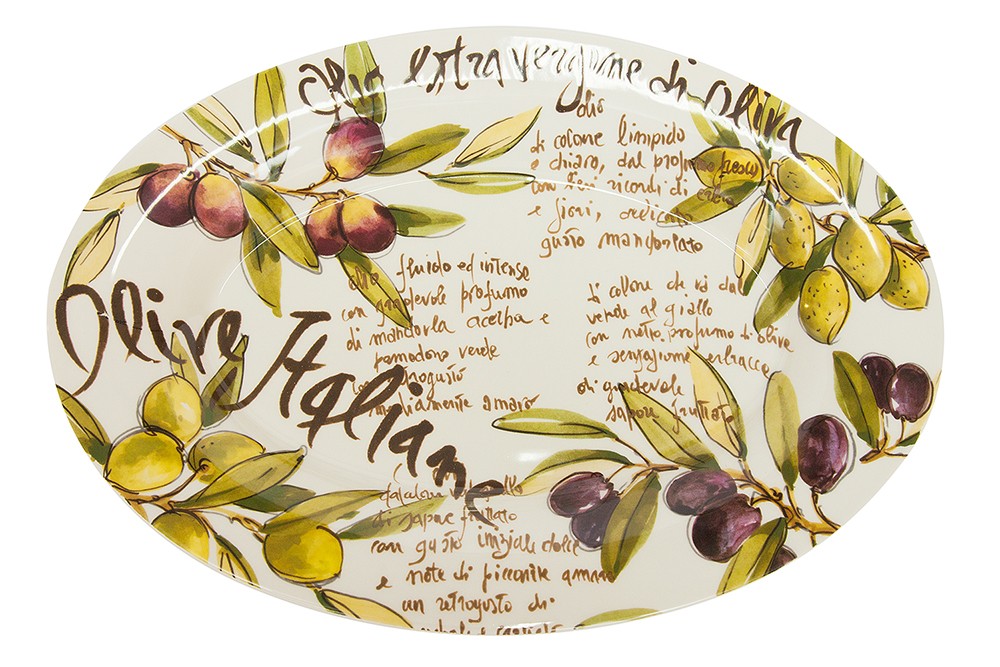 Olio extra vergine di oliva
olio
di colore limpido
e chiaro, dal profumo fresco
con lievi ricordi di erba
e fiori, delicato
gusto mandorlato
olio fluido ed intenso
con gradevole profumo
di mandorla acerba e
pomodoro verde
retrogusto
mediamente amaro
di colore che va dal
verde al giallo
con netto profumo di olive
e sensazione erbacea
di gradevole
sapore fruttato
Olive Italiane
di sapore fruttato
con gusto iniziale dolce
e note di piccante amaro
un retrogusto di